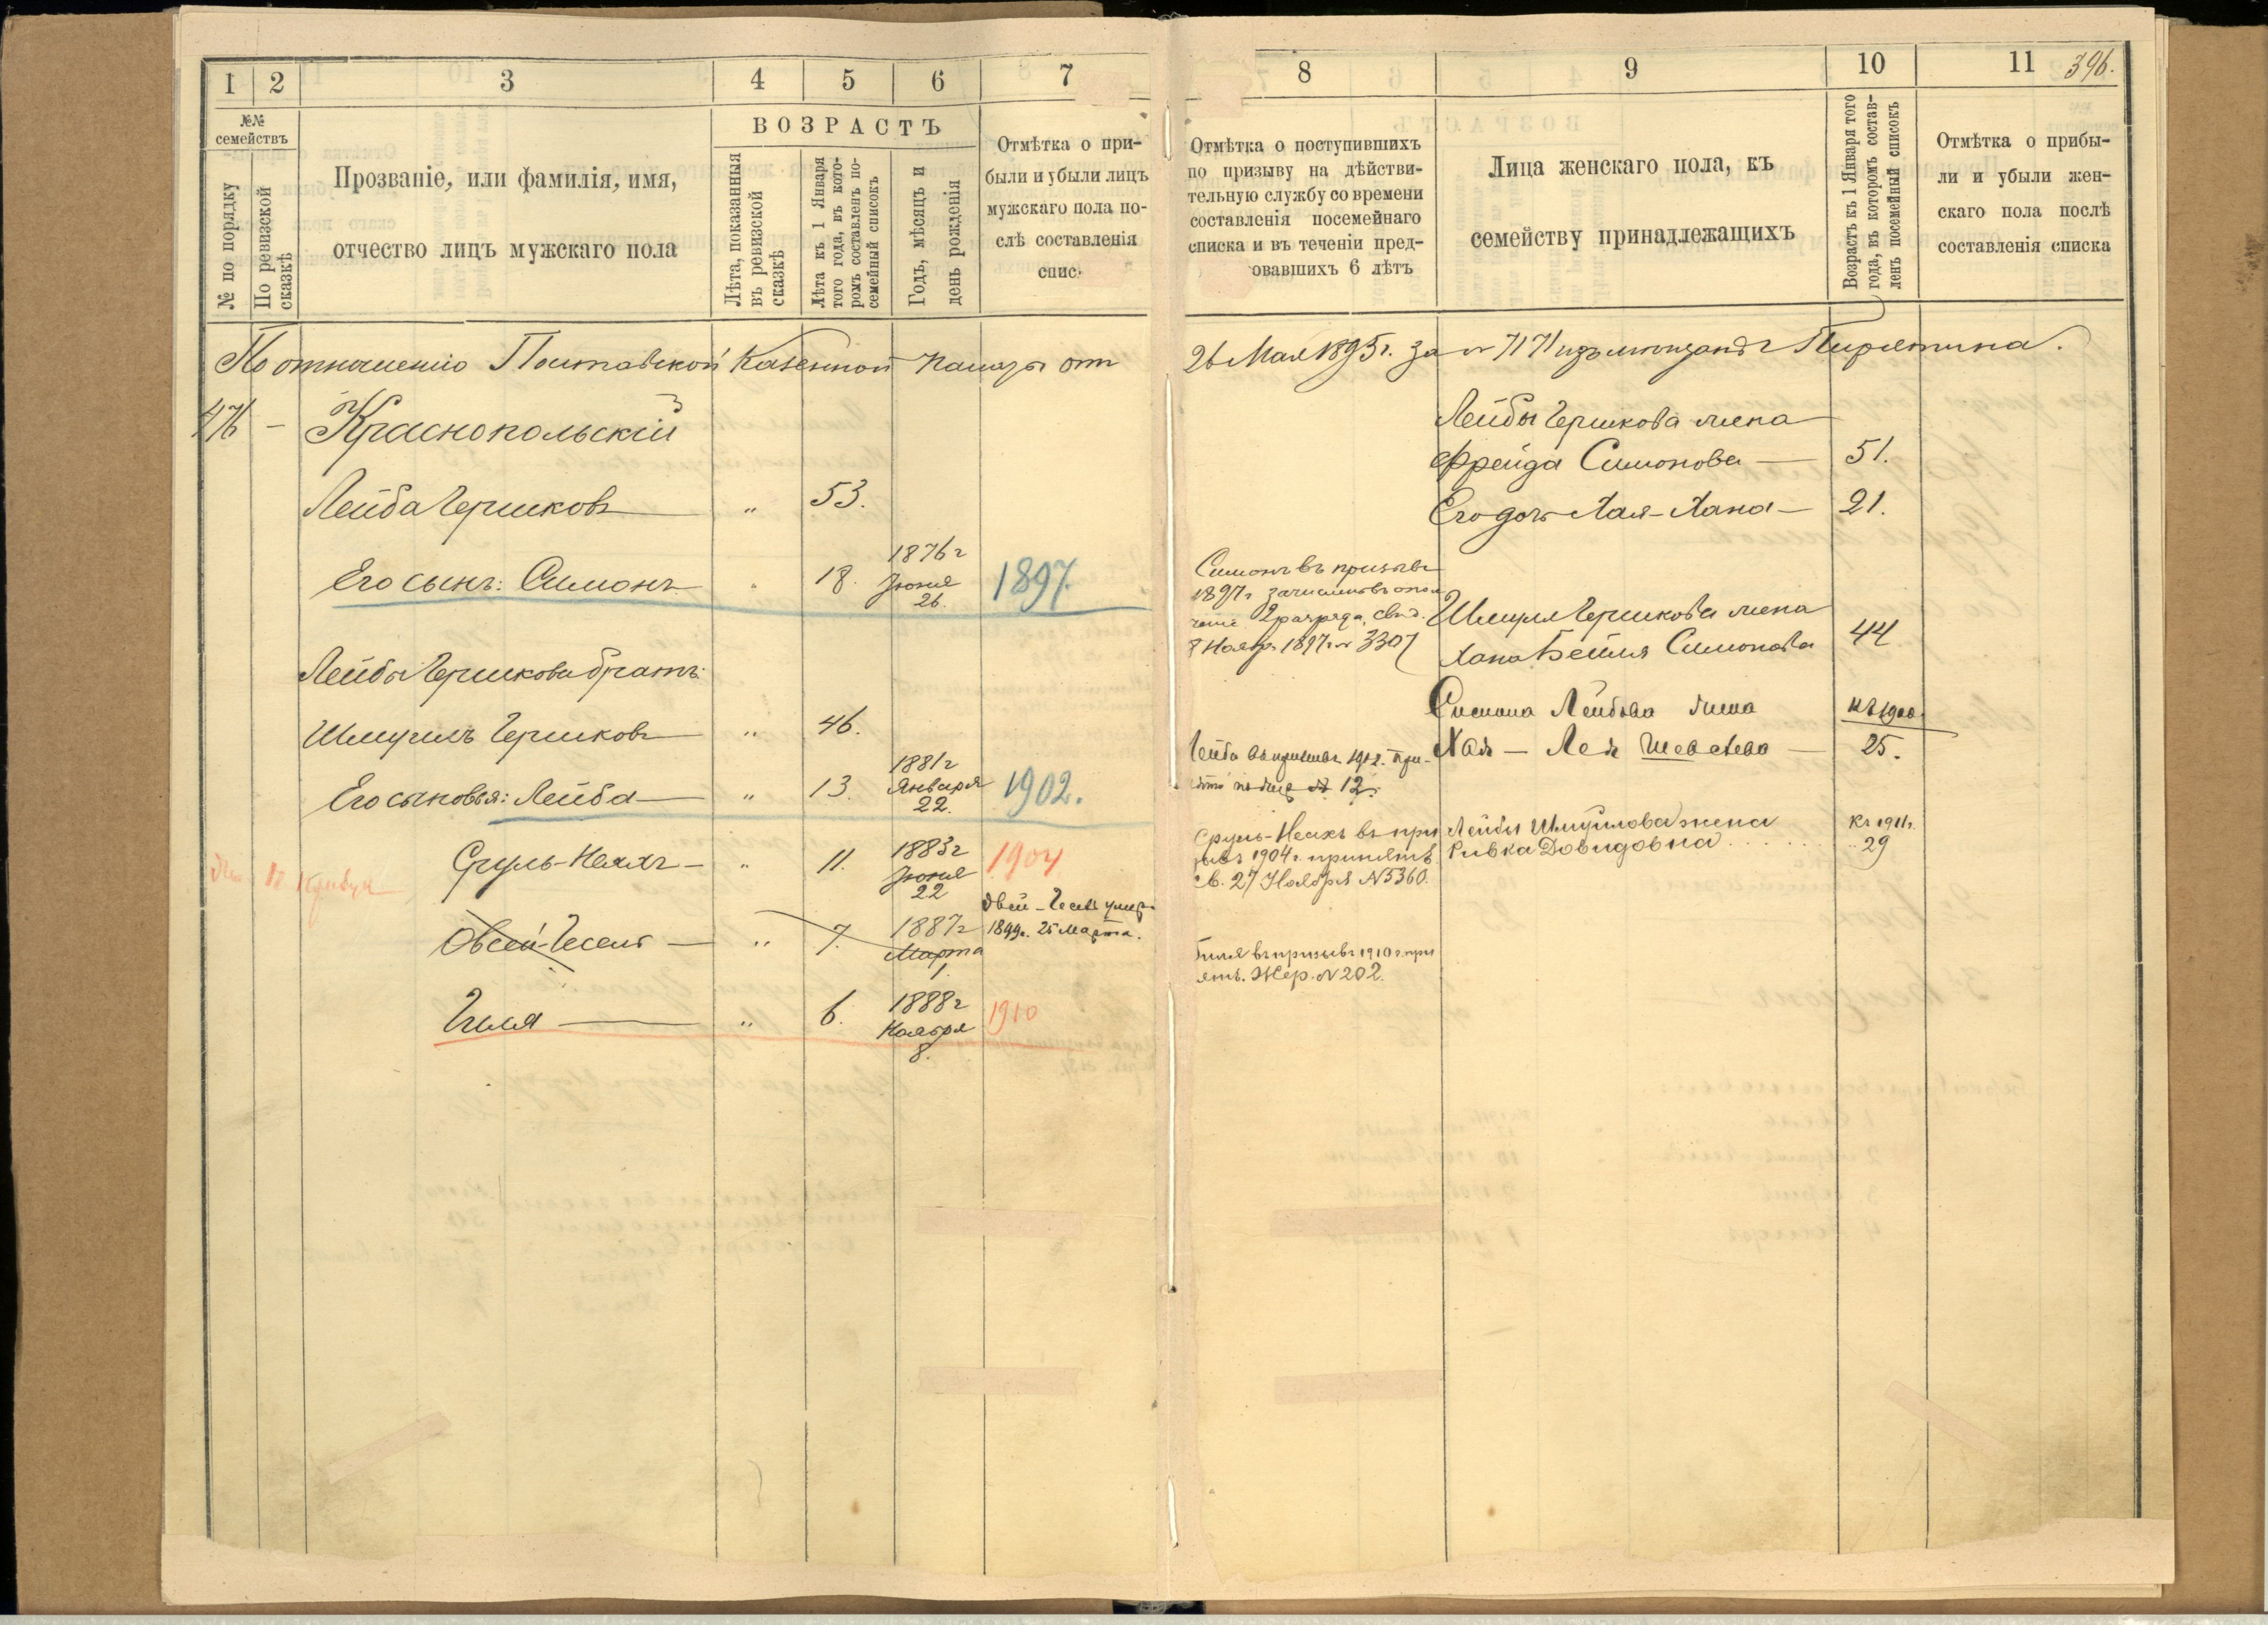 1 2 3 4 5 6 7
№№ семействъ
№ по порядку
По ревизской сказкѣ
Прозваніе, или фамилія, имя,
отчество лицъ мужскаго пола
ВОЗРАСТЪ
Лѣта, показанныя
въ ревизской
сказкѣ
Лѣта къ 1 Января
того года, въ кото-
ромъ составленъ по-
семейный списокъ
Годъ, мѣсяцъ и
день рожденія
Отмѣтка о при-
были и убыли лицъ
мужскаго пола по-
слѣ составленія
спис
По отношенію Полтавской Казенной Палаты отъ
476 - Краснопольскій
Лейба Гершковъ — " 53.
Его сынъ: Симонъ " 18. 1876 г
Іюня
26.
1897.
Лейбы Гершкова братъ:
Шмуилъ Гершковъ " 46.
Его сыновья: Лейба — " 13. 1881 г
Января
22.
1902.
Сруль- — " 11. 1883 г
Іюня
22
1904
Овсей-Гесель — " 7. 1887 г
Марта
1.
Овсей-Гесель умеръ
1899 г. 25 Марта.
Гиля — " 6. 1888 г
Ноября
8.
1910
8 9 10 11 396.
Отмѣтка о поступившихъ
по призыву на дѣйстви-
тельную службу со времени
составленія посемейнаго
списка и въ теченіи пред-
овавшихъ 6 лѣтъ
Лица женскаго пола, къ
семейству принадлежащихъ
Возрастъ къ 1 Января того
года, въ которомъ состав-
ленъ посемейный списокъ
Отмѣтка о прибы-
ли и убыли жен-
скаго пола послѣ
составленія списка
26 Мая 1895 г. за № 7171 изъ мѣщанъ г Пирятина.
Лейбы Гершкова жена
Фрейда Симонова — 51.
Его дочь Хая-Хана — 21.
Симонъ въ призывъ
1897 г зачисленъ въ опол
ченіе 2 разряда, свид.
8 Ноябр 1897 г № 3307
Шмуила Гершкова жена
Хана Бейля Симонова 44
Симона Лейбова жена къ 1900.
Хая — Лея — 25.
Лейба въ призывъ 1902. при-
нятъ № 12.
Сруль- въ при
зывъ 1904 г. принятъ
св. 27 Ноября № 5360.
Лейбы Шмуйлова жена къ 1911 г.
Ривка Довидовна 29
Гиля въ призывъ 1910 г. при
нятъ. Жер. № 202.